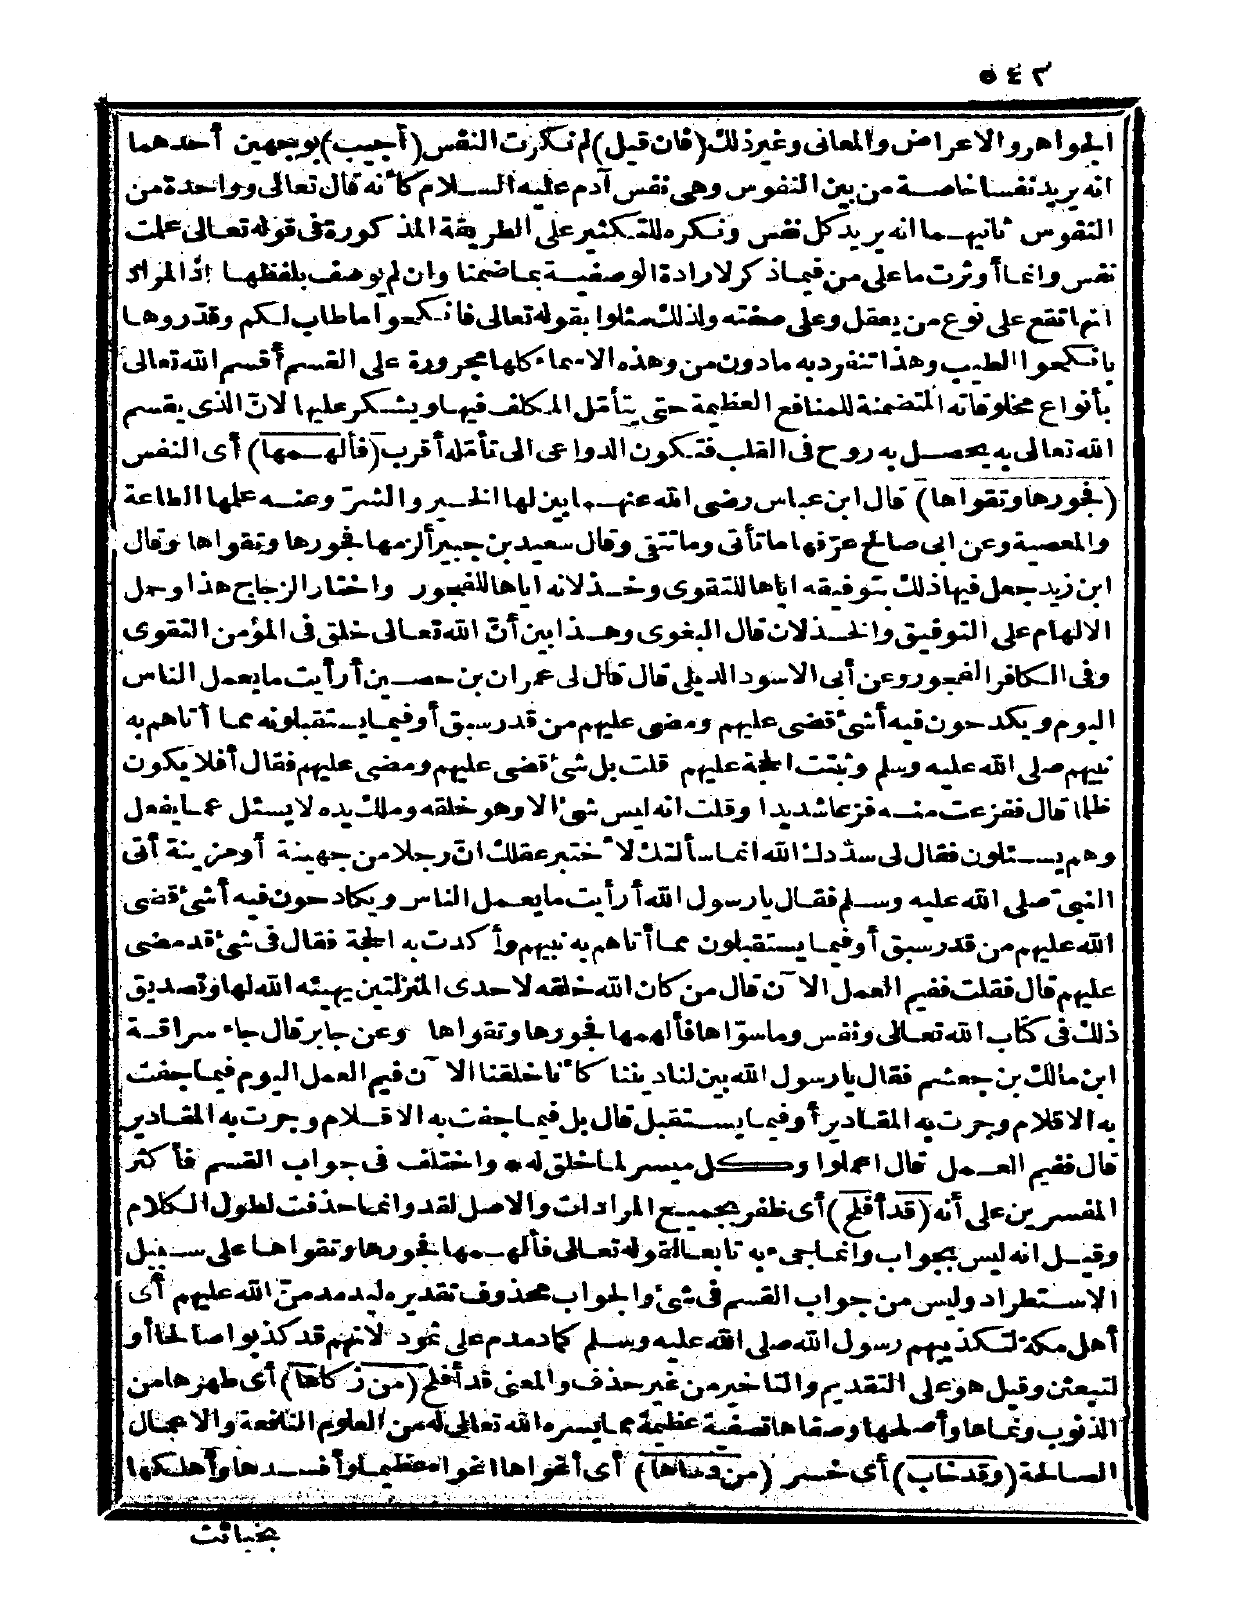 ٥٤٢
الجواهر والاعراض والمعانى وغير ذلك (فان قيل) لم نكرت النفس (أجيب) بوجهين أحدهما
انه يريد نفسا خاصة من بين النفوس وهى نفس آدم عليه السلام كأنه قال تعالى وواحدة من
النفوس ثانيهما انه يريد كل نفس ونكره للتكثير على الطريقة المذكورة فى قوله تعالى علمت
نفس وانما أوثرت ما على من فيما ذكر لارادة الوصفية بما ضمنا وان لم يوصف بلفظها اذ المراد
انها تقع على نوع من يعقل وعلى صفته ولذلك مثلوا بقوله تعالى فانكحوا ما طاب لكم وقدّروها
بانكحوا الطيب وهذا تنفرد به ما دون من وهذه الاسماء كلها مجرورة على القسم أقسم الله تعالى
بأنواع مخلوقاته المتضمنة للمنافع العظيمة حتى يتأمّل المكلف فيها ويشكر عليها لانّ الذى يقسم
الله تعالى به يحصل به روح فى القلب فتكون الدواعى الى تأمّله أقرب (فألهمها) أى النفس
(فجورها وتقواها) قال ابن عباس رضى الله عنهما بين لها الخير والشرّ وعنه علمها الطاعة
والمعصية وعن ابى صالح عرّفها ما تأتى وما تتقى وقال سعيد بن جبير ألزمها فجورها وتقواها وقال
ابن زيد جعل فيها ذلك بتوفيقه اياها للتقوى وخذلانه اياها للفجور واختار الزجاج هذا وحمل
الالهام على التوفيق والخذلان قال البغوى وهذا بين أنّ الله تعالى خلق فى المؤمن التقوى
وفى الكافر الفجور وعن أبى الاسود الديلى قال قال لى عمران بن حصين أرأيت ما يعمل الناس
اليوم ويكدحون فيه أشئ قضى عليهم ومضى عليهم من قدر سبق أو فيما يستقبلونه مما أتاهم به
نبيهم صلى الله عليه وسلم وثبتت الحجة عليهم قلت بل شئ قضى عليهم ومضى عليهم فقال أفلا يكون
ظلما قال ففزعت منه فزعا شديدا وقلت انه ليس شئ الا وهو خلقه وملك يده لا يسئل عما يفعل
وهم يسئلون فقال لى سدّدك الله انما سألتك لأختبر عقلك انّ رجلا من جهينة أو مزينة أتى
النبىّ صلى الله عليه وسلم فقال يا رسول الله أرأيت ما يعمل الناس ويكادحون فيه أشئ قضى
الله عليهم من قدر سبق أو فيما يستقبلون مما أتاهم به نبيهم وأكدت به الحجة فقال فى شئ قد مضى
عليهم قال فقلت ففيم العمل الآن قال من كان الله خلقه لاحدى المنزلتين يهيئه الله لها وتصديق
ذلك فى كتاب الله تعالى ونفس وما سوّاها فألهمها فجورها وتقواها وعن جابر قال جاء سراقة
ابن مالك بن جعشم فقال يا رسول الله بين لنا ديننا كأنا خلقنا الآن فيم العمل اليوم فيما جفت
به الاقلام وجرت به المقادير أو فيما يستقبل قال بل فيما جفت به الاقلام وجرت به المقادير
قال ففيم العمل قال اعملوا وكل ميسر لما خلق له* واختلف فى جواب القسم فأكثر
المفسرين على أنه (قد أفلح) أى ظفر بجميع المرادات والاصل لقد وانما حذفت لطول الكلام
وقيل انه ليس بجواب وانما جىء به تابعا لقوله تعالى فألهمها فجورها وتقواها على سبيل
الاستطراد وليس من جواب القسم فى شئ والجواب محذوف تقديره ليدمدمنّ الله عليهم أى
أهل مكة لتكذيبهم رسول الله صلى الله عليه وسلم كما دمدم على ثمود لانهم قد كذبوا صالحا أو
لتبعثن وقيل هو على التقديم والتأخير من غير حذف والمعنى قد أفلح (من زكاها) أى طهرها من
الذنوب ونماها وأصلحها وصفاها تصفية عظيمة مما يسره الله تعالى له من العلوم النافعة والاعمال
الصالحة (وقد خاب) أى خسر (من دساها) أى أغواها اغواء عظيما وأفسدها وأهلكها
بخبائث